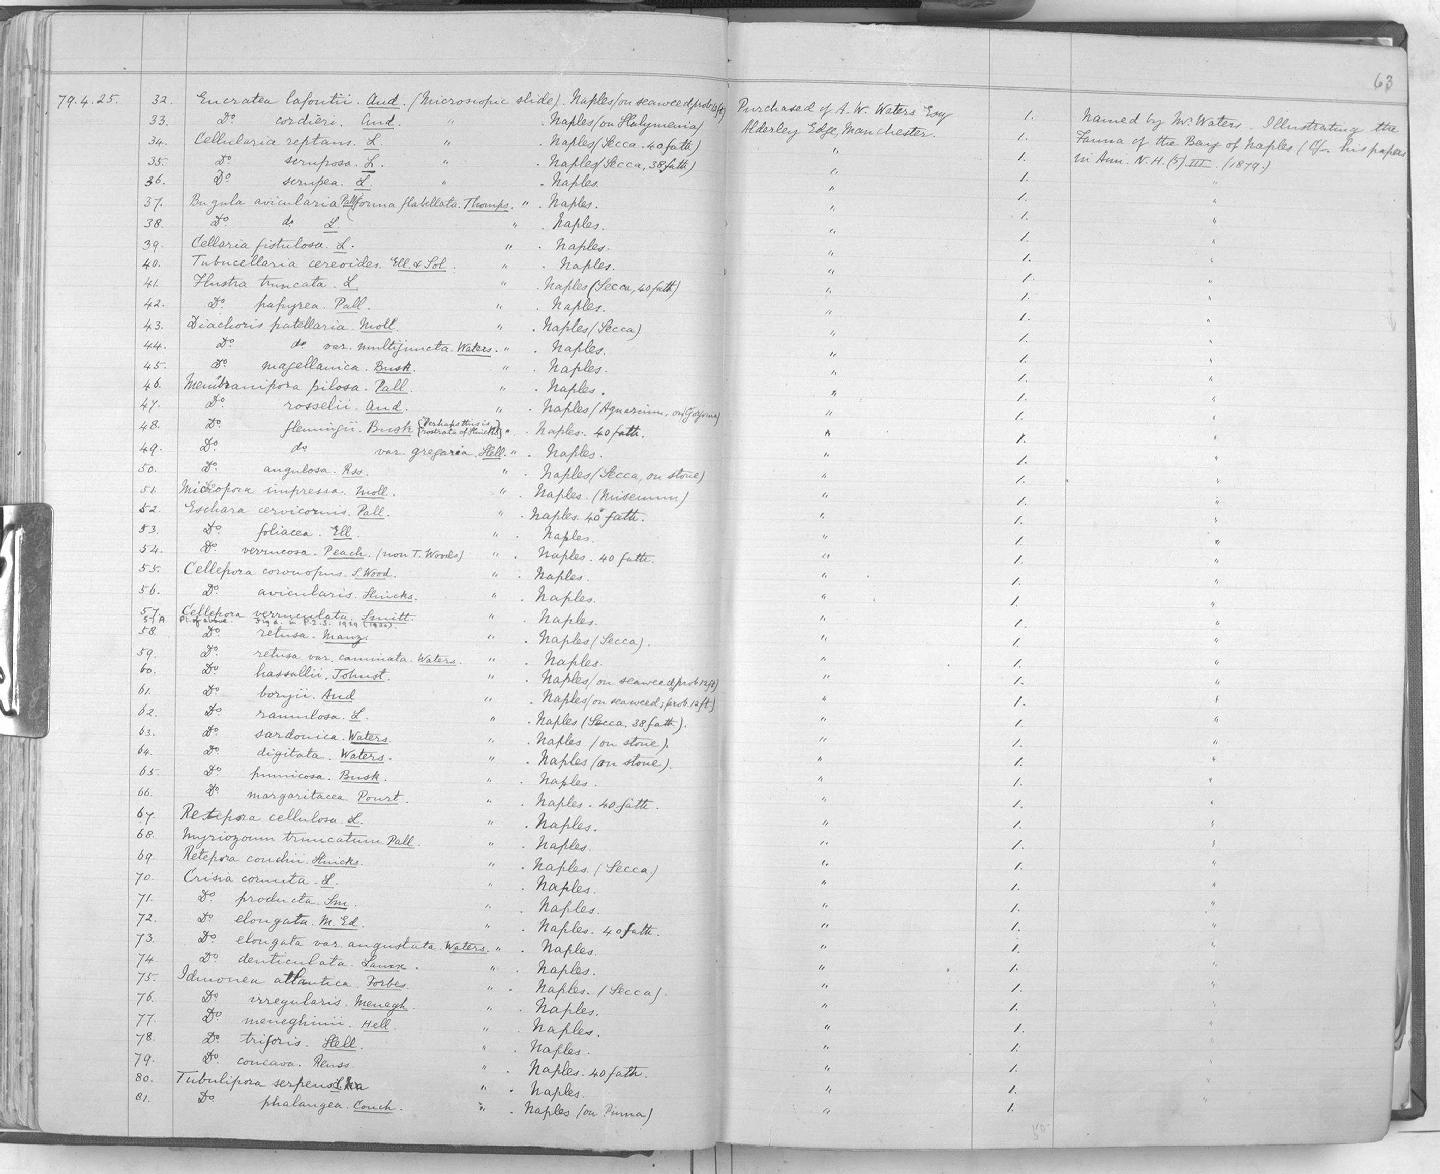 63
79.4.25. 32. Eucratea lafontii. Aud. (Microscopic slide). Naples (on seaweed, prob. 12 ft) Purchased of A. W. Waters Esq 1. Named by Mr. Waters. Illustrating the
33. Do cordieri. Aud. " . Naples (on Halymenia) Alderley Edge, Manchester. 1. Fauna of the Bay of Naples (Cfr. his papers
34. Cellularia reptans. L. " . Naples (Secca. 40 fath) " 1. in Ann. N. H. (5) III. (1879.)
35. Do scruposa. L. " . Naples (Secca, 38 fath) " 1. "
36. Do scrupea. L. " . Naples. " 1. "
37. Bugula avicularia Pall forma flabellata. Thomps. " . Naples. " 1. "
38. Do do L. " . Naples. " 1. "
39. Cellaria fistulosa. L. " . Naples. " 1. "
40. Tubucellaria cereoides. Ell. & Sol. " . Naples. " 1. "
41. Flustra truncata. L. " . Naples (Secca, 40 fath) " 1. "
42. Do papyrea. Pall. " . Naples. " 1. "
43. Diachoris patellaria. Moll. " . Naples (Secca) " 1. "
44. Do do var. multijuncta. Waters. " . Naples. " 1. "
45. Do magellanica. Busk. " . Naples. " 1. "
46. Membranipora pilosa. Pall. " . Naples. " 1. "
47. Do rosselii. Aud. " . Naples (Aquarium, on Gorgonia) " 1. "
48. Do flemingii. Busk (Perhaps this is rostrata of Hincks) " . Naples. 40 fath. " 1. "
49. Do do var. gregaria. Hell. " . Naples. " 1. "
50. Do angulosa. Rss. " . Naples (Secca, on stone) " 1. "
51. Micropora impressa. Moll. " . Naples. (Misenum) " 1. "
52. Eschara cervicornis. Pall. " . Naples. 40 fath. " 1. "
53. Do foliacea. Ell. " . Naples. " 1. "
54. Do verrucosa. Peach. (non T. Woods) " . Naples. 40 fath. " 1. "
55. Cellepora coronopus. S. Wood. " . Naples. " 1. "
56. Do avicularis. Hincks. " . Naples. " 1. "
57. Cellepora verruculata. Smitt. " . Naples. " 1. "
57A
58. Do retusa. Manz. " . Naples (Secca). " 1. "
59. Do retusa var. caminata. Waters. " . Naples. " 1. "
60. Do hassallii. Johnst. " . Naples (on seaweed, prob 12 ft) " 1. "
61. Do boryii. Aud " . Naples (on seaweed; prob. 12 ft) " 1. "
62. Do ramulosa. L. " . Naples (Secca, 38 fath). " 1. "
63. Do sardonica. Waters. " . Naples (on stone). " 1. "
64. Do digitata. Waters. " . Naples (on stone). " 1. "
65. Do pumicosa. Busk. " . Naples. " 1. "
66. Do margaritacea. Pourt. " . Naples. 40 fath. " 1. "
67. Retepora cellulosa. L. " . Naples. " 1. "
68. Myriozoum truncatum. Pall. " . Naples. " 1. "
69. Retepora couchii. Hincks. " . Naples. (Secca) " 1. "
70. Crisia cornuta. L. " . Naples. " 1. "
71. Do producta. Sm. " . Naples. " 1. "
72. Do elongata. M. Ed. " . Naples. 40 fath. " 1. "
73. Do elongata var. angustata. Waters. " . Naples. " 1. "
74. Do denticulata. Lamx. " . Naples. " 1. "
75. Idmonea atlantica. Forbes. " . Naples. (Secca). " 1. "
76. Do irregularis. Menegh. " . Naples. " 1. "
77. Do meneghinii. Hell. " . Naples. " 1. "
78. Do triforis. Hell. " . Naples. " 1. "
79. Do concava. Reuss " . Naples. 40 fath. " 1. "
80. Tubulipora serpens " . Naples. " 1. "
81. Do phalangea. Couch. " . Naples (on Pinna) " 1.
50